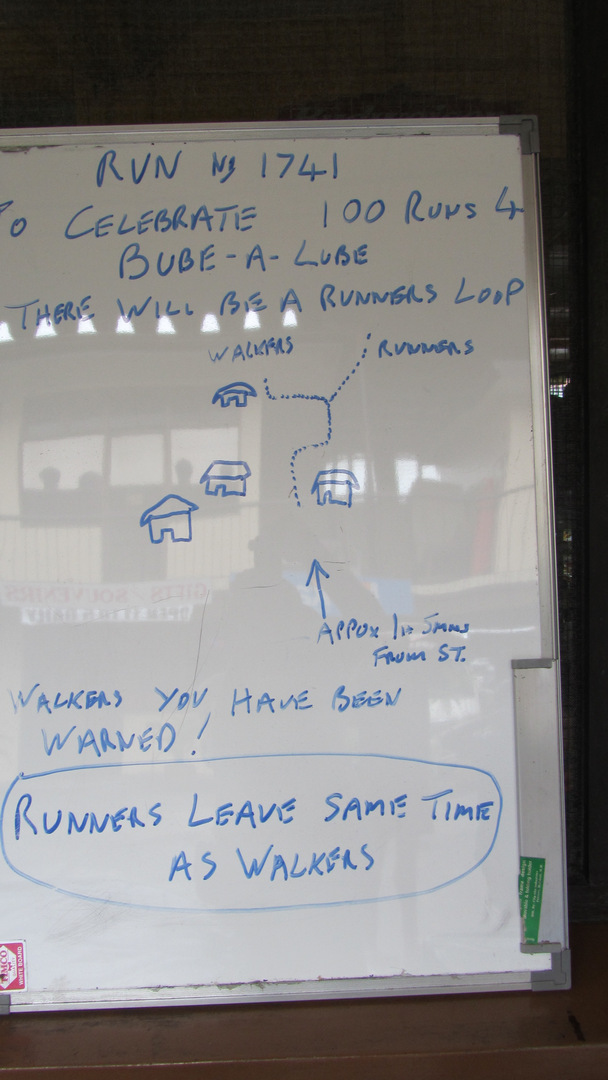 RUN No 1741
TO CELEBRATE 100 RUNS 4
BUBE-A-LUBE
THERE WILL BE A RUNNERS LOOP
WALKERS RUNNERS
GIFTS / SOUVENIRS
APPOX 1H 5MINS
FROM ST.
WALKERS YOU HAVE BEEN
WARNED!
RUNNERS LEAVE SAME TIME
AS WALKERS
WHITE BOARD